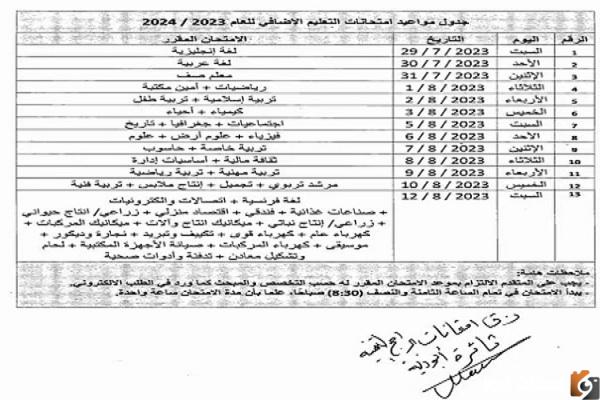 جدول مواعيد امتحانات التعليم الاضافي للعام 2023 / 2024
الرقم اليوم التاريخ الامتحان المقرر
1 السبت 29 / 7 / 2023 لغة إنجليزية
2 الأحد 30 / 7 / 2023 لغة عربية
3 الإثنين 31 / 7 / 2023 معلم صف
4 الثلاثاء 1 / 8 / 2023 رياضيات + أمين مكتبة
5 الأربعاء 2 / 8 / 2023 تربية إسلامية + تربية طفل
6 الخميس 3 / 8 / 2023 كيمياء + أحياء
7 السبت 5 / 8 / 2023 اجتماعيات + جغرافيا + تاريخ
8 الأحد 6 / 8 / 2023 فيزياء + علوم أرض + علوم
9 الإثنين 7 / 8 / 2023 تربية خاصة + حاسوب
10 الثلاثاء 8 / 8 / 2023 ثقافة مالية + أساسيات إدارة
11 الأربعاء 9 / 8 / 2023 تربية مهنية + تربية رياضية
12 الخميس 10 / 8 / 2023 مرشد تربوي + تجميل + إنتاج ملابس + تربية فنية
13 السبت 12 / 8 / 2023 لغة فرنسية + اتصالات والكترونيات
+ صناعات غذائية + فندقي + اقتصاد منزلي + زراعي/ انتاج حيواني
+ زراعي/ إنتاج نباتي + ميكانيك انتاج وآلات + ميكانيك المركبات +
كهرباء عام + كهرباء قوى + تكييف وتبريد + نجارة وديكور +
موسيقى + كهرباء المركبات + صيانة الأجهزة المكتبية + لحام
وتشكيل معادن + تدفئة وأدوات صحية
ملاحظات هامة:
- يجب على المتقدم الالتزام بموعد الامتحان المقرر له حسب التخصص والمبحث كما ورد في الطلب الالكتروني.
- يبدأ الامتحان في تمام الساعة الثامنة والنصف (8:30) صباحًا، علما بأن مدة الامتحان ساعة واحدة.